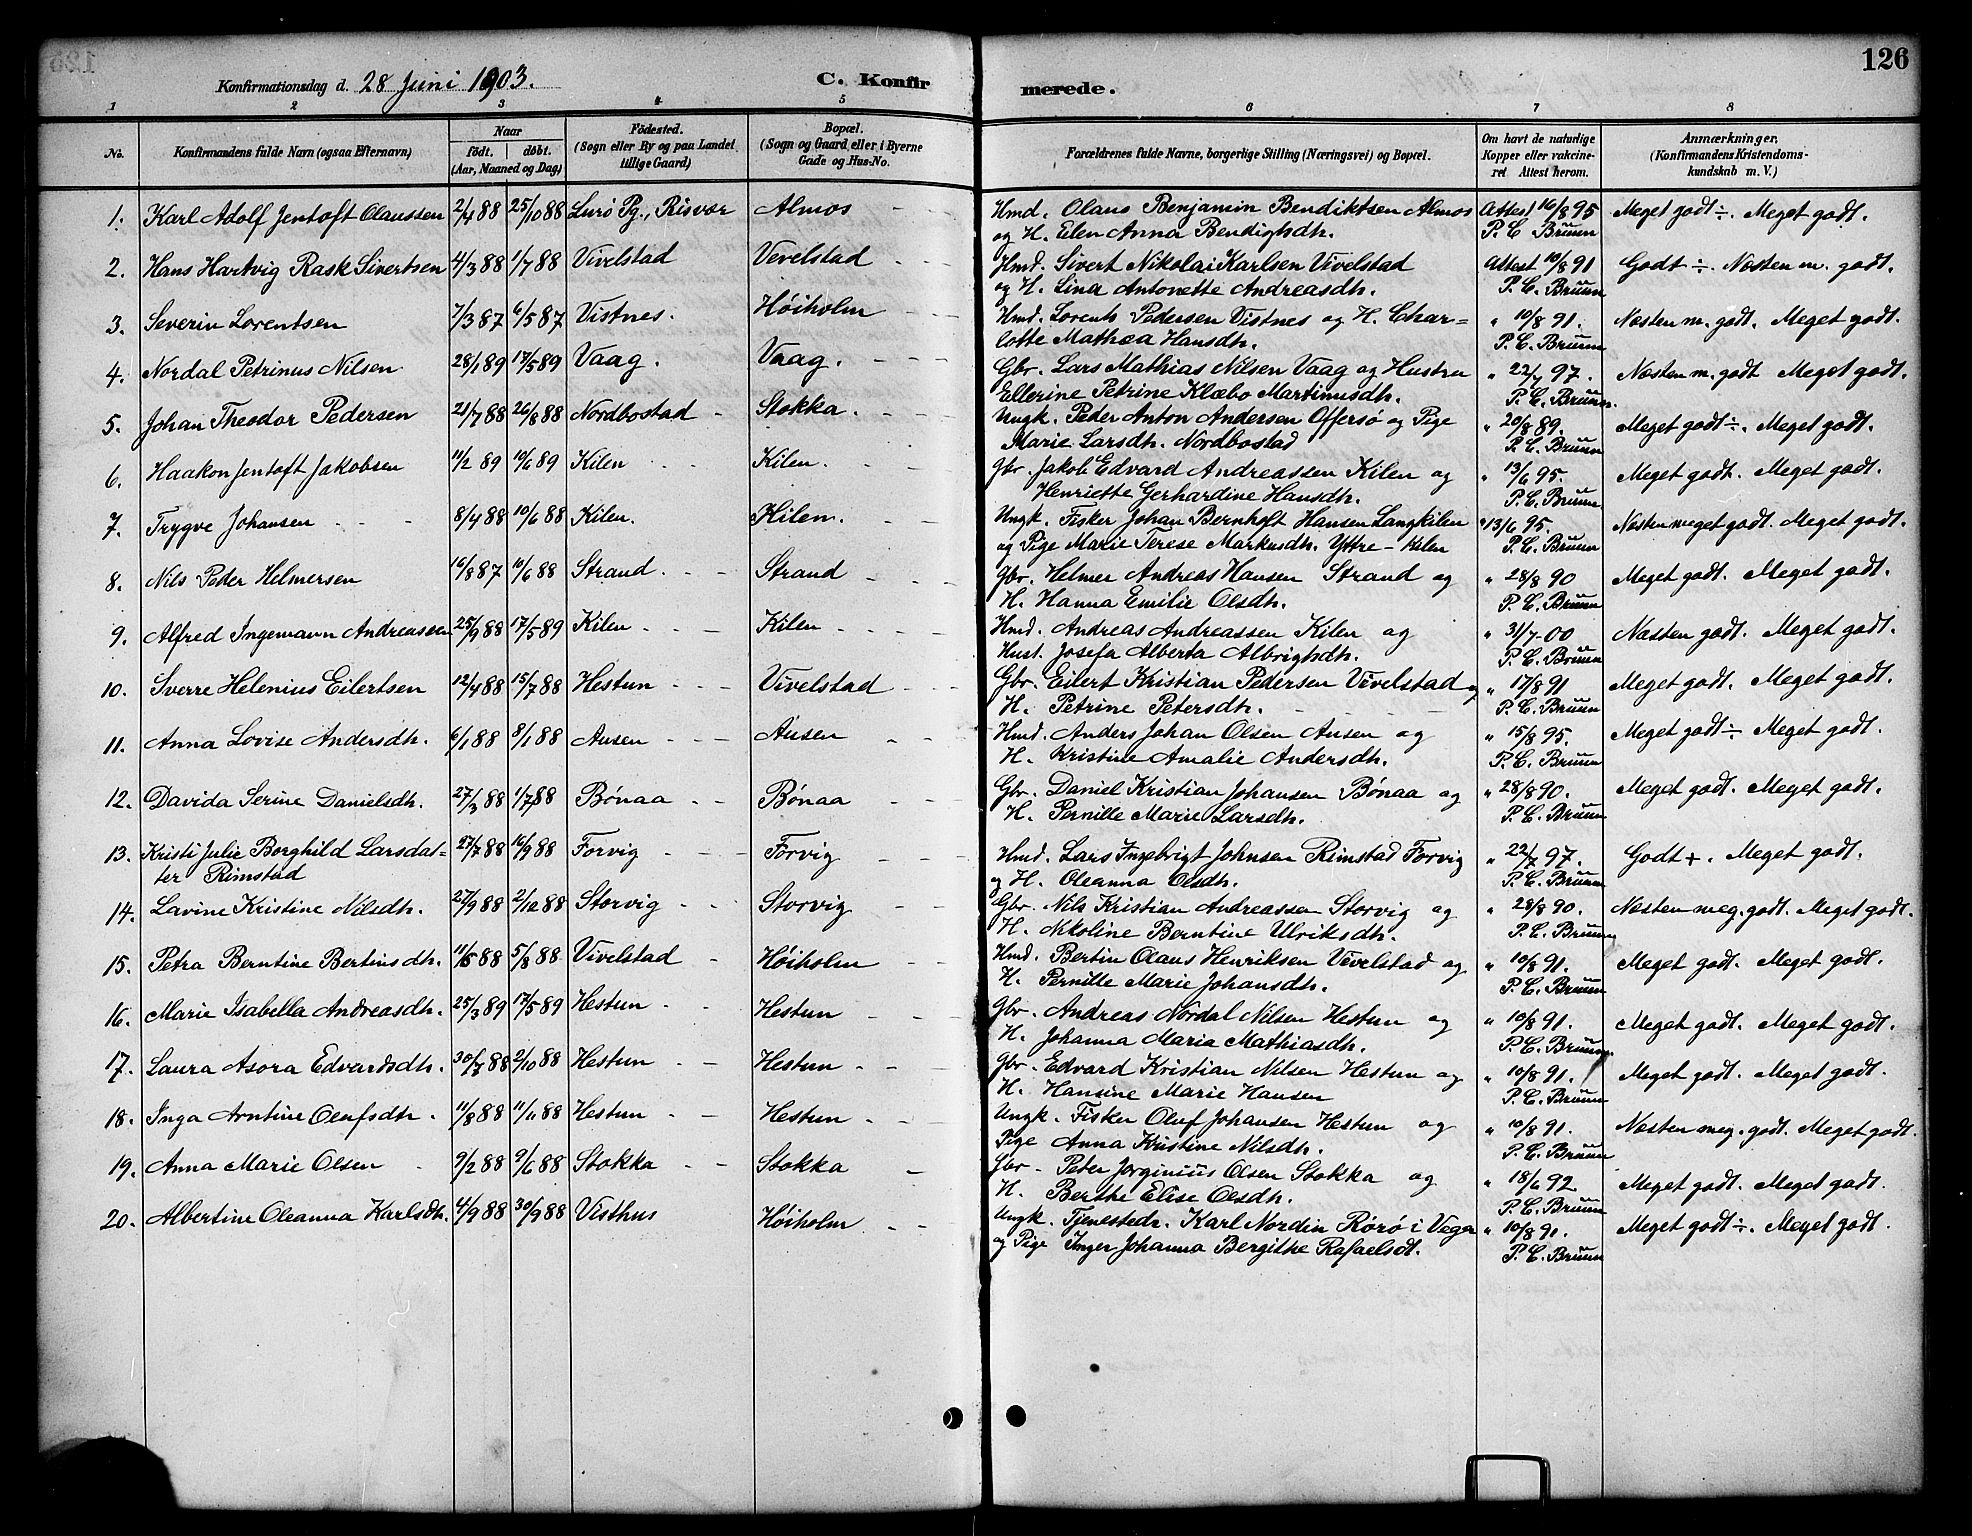 126
Konfirmationsdag d. 28 Juni 1903. C. Konfirmerede.
1 2 3 4 5 6 7 8
No. Konfirmandens fulde Navn (ogsaa Efternavn) Naar födt. döbt. (Aar, Maaned og Dag) Födested. (Sogn eller By og paa Landet tillige Gaard) Bopæl. (Sogn og Gaard, eller i Byerne Gade og Hus-No. Forældrenes fulde Navne, borgerlige Stilling (Næringsvei) og Bopæl. Om havt de naturlige Kopper eller vakcineret. Attest herom. Anmærkninger, (Konfirmandens Kristendomskundskab m. V.)
1. Karl Adolf Jentoft Olaussen 2/4 88 25/10 88 Lurø Pg., Risvær Almos Hmd. Olaus Benjamin Bendiktsen Almos Attest 16/8 95 Meget godt ÷. Meget godt.
og H. Elen Anna Bendigtsdh. P. C. Bruun
2. Hans Hartvig Rask Sivertsen 4/3 88 1/7 88 Vivelstad Vevelstad Hmd. Sivert Nikolai Karlsen Vivelstad Attest 10/8 91 Godt ÷. Næsten m. godt.
og H. Lina Antonette Andreasdh. P. C. Bruun
3. Severin Lorentsen 7/3 87 6/5 87 Vistnes. Høiholm Hmd. Lorents Pedersen Vistnes og H. Char= " 10/8 91. Næsten m. godt. Meget godt.
lotte Mathea Hansdh. P. C. Bruun
4. Nordal Petrinus Nilsen 28/1 89 17/5 89 Vaag. Vaag. Gbr. Lars Mathias Nilsen Vaag og Hustru " 22/7 97. Næsten m. godt Meget godt.
Ellerine Petrine Klæbo Martinusdh. P. C. Bruun.
5. Johan Theodor Pedersen 21/7 88 26/8 88 Nordbostad Stokka. Ungk. Peder Anton Andersen Offersø og Pige " 20/8 89. Meget godt ÷. Meget godt.
Marie Larsdh. Nordbostad P. C. Bruun
6. Haakon Jentoft Jakobsen 11/2 89 10/6 89 Kilen Kilen. Gbr. Jakob Edvard Andreassen Kilen og " 13/6 95. Meget godt. Meget godt.
Henriette Gerhardine Hansdh. P. C. Bruun
7. Trygve Johansen 8/4 88 10/6 88 Kilen. Kilen. Ungk. Fisker Johan Bernhoft Hansen Langkilen " 13/6 95. Næsten meget godt. Meget godt.
og Pige Marie Terese Markusdh. Yttre-Kilen P. C. Bruun
8. Nils Peder Helmersen 16/8 87 10/6 88 Strand. Strand Gbr. Helmer Andreas Hansen Strand og " 28/8 90 Meget godt. Meget godt.
H. Hanna Emilie Olsdh. P. C. Bruun
9. Alfred Ingemann Andreassen 25/9 88 17/5 89 Kilen. Kilen. Hmd. Andreas Andreassen Kilen og " 31/7 00 Næsten godt. Meget godt.
Hust. Josefa Alberta Albrigtsdh. P. C. Bruun
10. Sverre Helenius Eilertsen 12/4 88 15/7 88 Hestun Vivelstad Gbr. Eilert Kristian Pedersen Vevelstad og " 17/8 91 Meget godt. Meget godt.
H. Petrine Petersdh. P. C. Bruun
11. Anna Lovise Andersdh. 6/1 88 8/1 88 Ausen Ausen Hmd. Anders Johan Olsen Ausen og " 15/8 95. Meget godt ÷ Meget godt.
H. Kristine Amalie Andersdh. P. C. Bruun
12. Davida Serine Danielsdh. 27/3 88 1/7 88 Bønaa Bønaa Gbr. Daniel Kristian Johansen Bønaa og " 28/8 90. Meget godt. Meget godt.
H. Pernille Marie Larsdh. P. C. Bruun
13. Kristi Julie Borghild Larsdat= 27/7 88 16/9 88 Forvig Forvig Hmd. Lars Ingebrigt Johnsen Rimstad Forvig " 22/7 97. Godt +. Meget godt.
ter Rimstad og H. Oleanna Olsdh. P. C. Bruun
14. Lavine Kristine Nilsdh. 27/9 88 2/12 88 Storvig Storvig Gbr. Nils Kristian Andreassen Storvig og " 28/8 90. Næsten meg. godt. Meget godt.
H. Nikoline Berntine Ulriksdh. P. C. Bruun
15. Petra Berntine Bertinsdh. 11/5 88 5/8 88 Vivelstad Høiholm Hmd. Bertin Olaus Henriksen Vevelstad og " 10/8 91. Meget godt. Meget godt.
H. Pernille Marie Johansdh. P. C. Bruun
16. Marie Isabella Andreasdh. 25/3 89 17/5 89 Hestun Hestun Gbr. Andreas Nordal Nilsen Hestun og " 10/8 91. Meget godt. Meget godt.
H. Johanna Maria Mathiasdh. P. C. Bruun.
17. Laura Asora Edvardsdh. 30/7 88 2/10 88 Hestun Hestun Gbr. Edvard Kristian Nilsen Hestun og " 10/8 91. Meget godt. Meget godt.
H. Hansine Marie Hansen P. C. Bruun
18. Inga Arntine Olufsdh. 11/8 88 11/11 88 Hestun Hestun Ungk. Fisker Oluf Johansen Hestun og " 10/8 91. Næsten meg. godt. Meget godt.
Pige Anna Kristine Nilsdh. P. C. Bruun
19. Anna Marie Olsen 9/2 88 9/6 88 Stokka Stokka Gbr. Peter Jørginius Olsen Stokka og " 18/6 92 Meget godt. Meget godt.
H. Berthe Elise Olsdh. P. C. Bruun
20. Albertine Oleanna Karlsdh. 4/9 88 30/9 88 Visthus Høiholm Ungk. Tjenestedr. Karl Nordin Rørø i Vega " 10/8 91. Meget godt ÷. Meget godt.
og Pige Inger Johanna Bergithe Rafaelsdt. P. C. Bruun